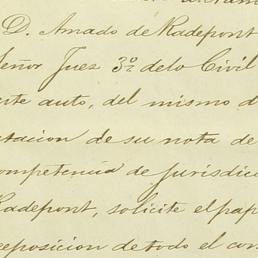 D. Amado de Radepont
eñor Juez 3º. delo Civil
te auto, del mismo d
tacion de su nota de
ompetencia de Jurisdic
Radepont, solicite el pap
eposicion de todo el con